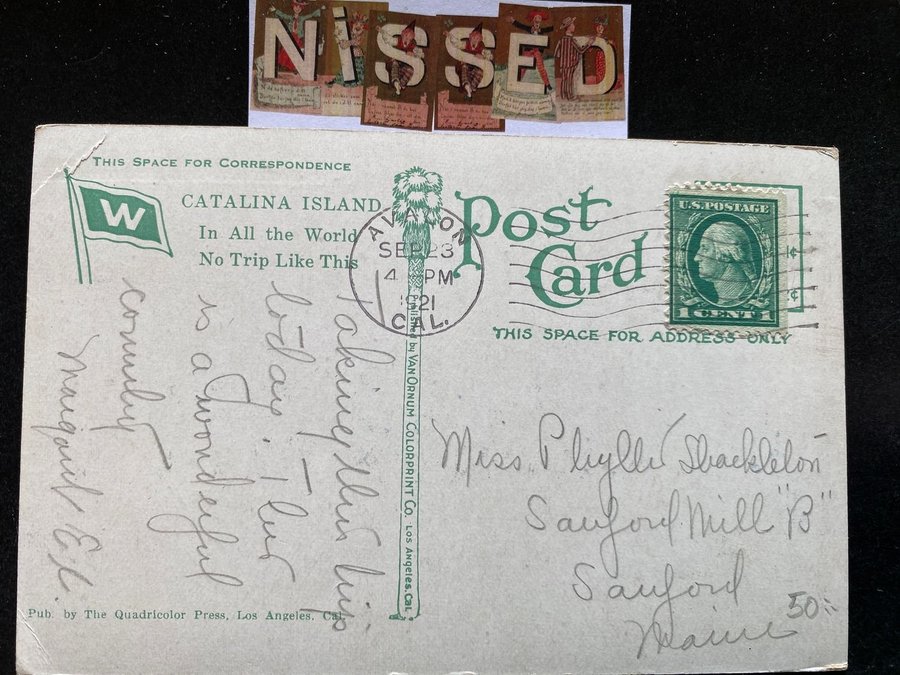 NiSSED
THIS SPACE FOR CORRESPONDENCE
W
CATALINA ISLAND
In All the World
No Trip Like This
Taking this trip
today. This
is a wonderful
country
Post
Card
THIS SPACE FOR ADDRESS ONLY
AVALON
SEP 23
4 PM
1921
CAL.
U.S. POSTAGE
1 CENT 1
Published by VAN ORNUM COLORPRINT CO. LOS ANGELES. CAL.
Miss Phyllis Shackleton
Sanford Mill "B"
Sanford
Maine
50
Pub. by The Quadricolor Press, Los Angeles, Cal.